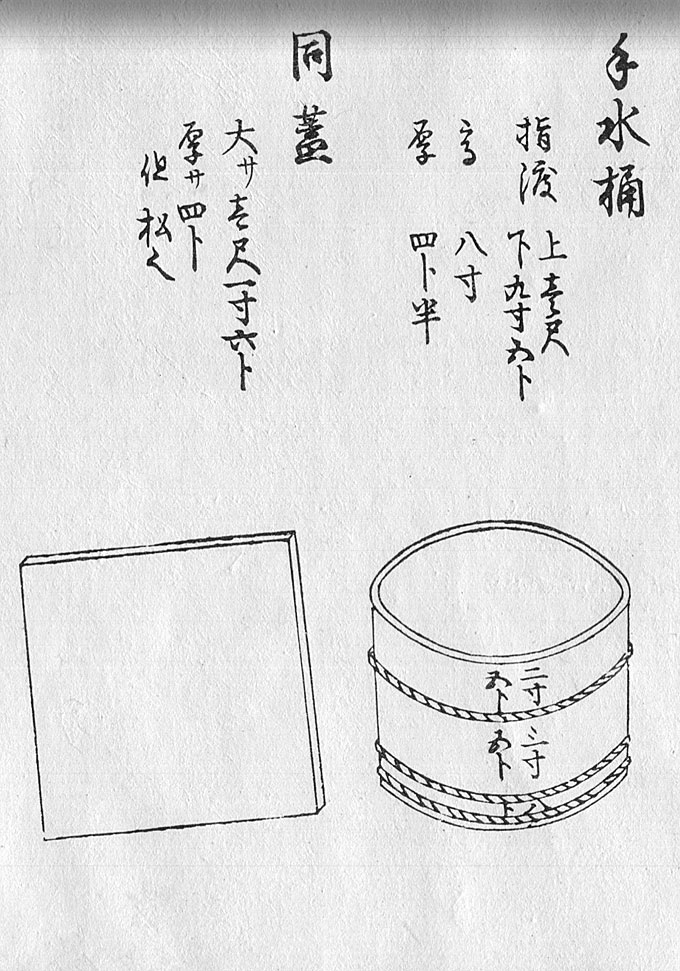 手水桶
指渡
上壱尺
下九寸五卜
高 八寸
厚 四卜半
同蓋
大サ壱尺一寸六卜
厚サ四卜
但 松
二寸
五卜
三寸
五卜
八卜